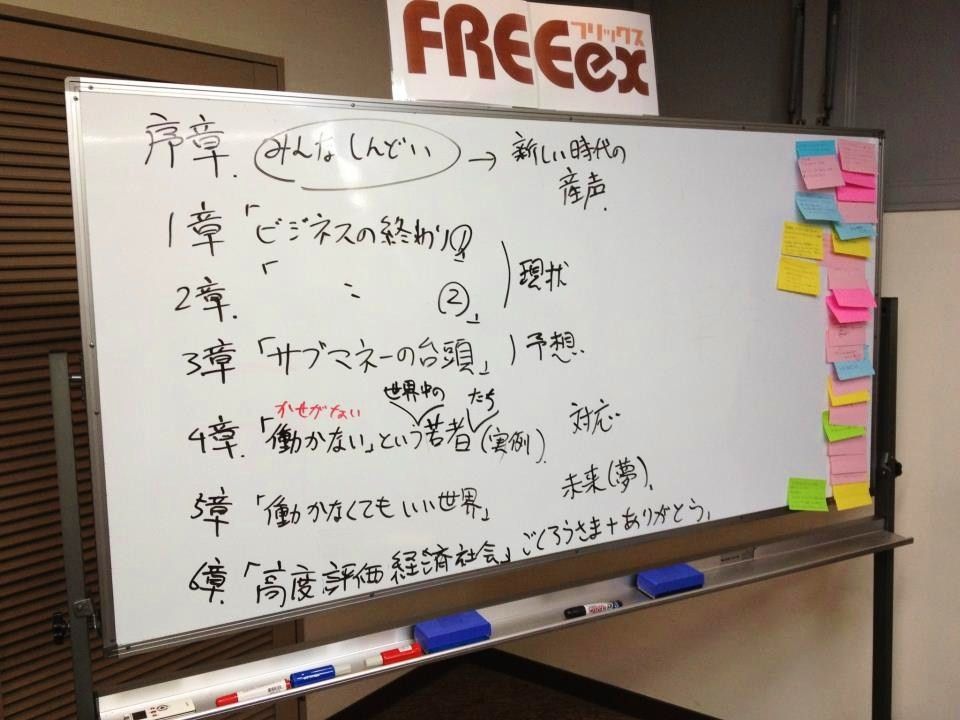 フリックス
FREEex
序章. みんなしんどい → 新しい時代の
産声.
1章「ビジネスの終わり①」
2章.「 〃 ②」 現状
3章「サブマネーの台頭」 予想.
かせがない 世界中の たち
4章.「働かない」という若者(実例). 対応
5章「働かなくてもいい世界」 未来(夢).
6章.「高度評価経済社会」ごくろうさま+ありがとう.